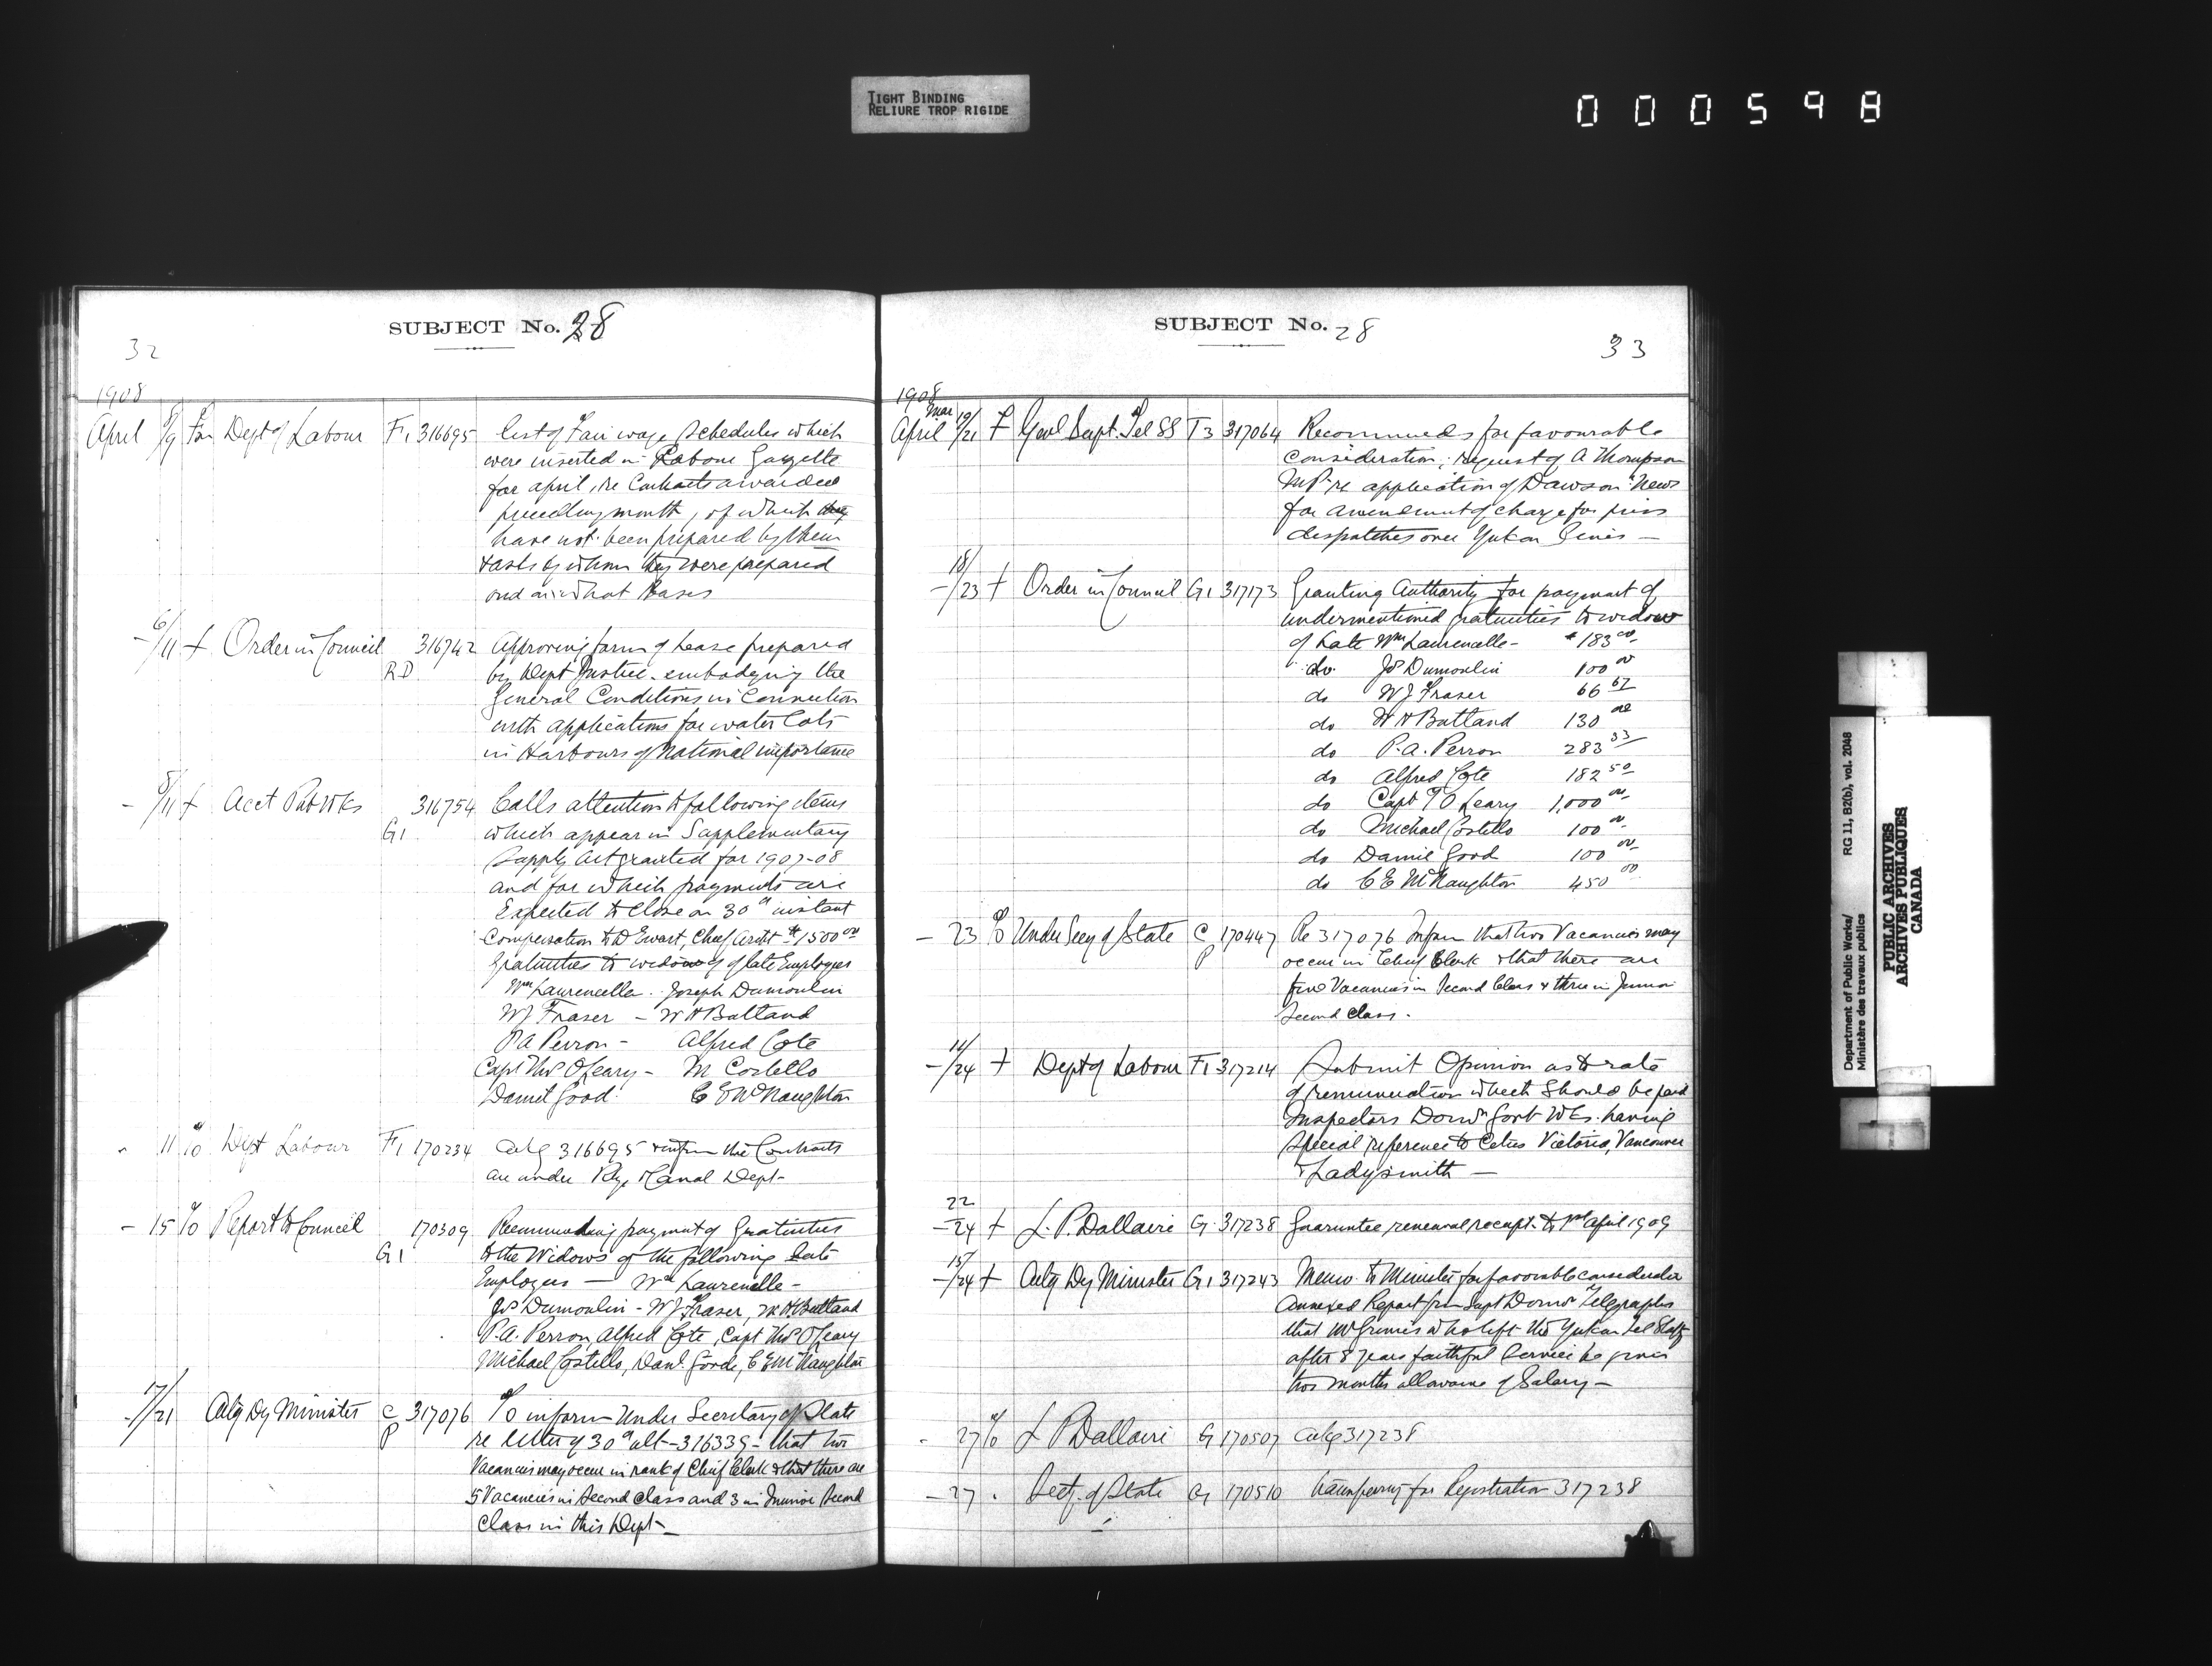 TIGHT BINDING
RELIURE TROP RIGIDE
000598
SUBJECT No. 28
32
1908
April 8/9 Dept of Labour F1 316695 List of Fair wage Schedules which
were inserted in Labour Gazette
for April, re Contracts awarded
preceeding month, of which they
have not been prepared by them
& asks by whom they were prepared
and on what Bases
- 6/11 f Order in Council R.D 316742 Approving form of Lease prepared
by Dept Justice embodying the
General Conditions in Connection
with applications for water Lots
in Harbours of National importance
- 8/11 f Acct Pub Wks G1 316754 Calls attention to following items
which appear in Supplementary
Supply Act granted for 1907-08
and for which payments are
Expected to close on 30th instant
Compensation to D Ewart, Chief Archt $1500.00
Gratuities to widows of late Employees
Wm Laurencelle. Joseph Dumoulin
WJ Fraser - W H Butland
P A Perron - Alfred Cote
Capt Thos O'Leary - M Costello
Daniel Good. C E McNaughton
" 11 To Dept Labour F1 170234 Ackg 316695 & inform the Contracts
are under Ry & Canal Dept-
- 15 To Report to Council G1 170309 Recommending payment of Gratuities
to the Widows of the following Late
Employees — Wm Laurencelle -
Jos Dumoulin - WJ Fraser, W H Butland
P.A. Perron, Alfred Cote, Capt Thos O'Leary
Michael Costello, Danl. Goode, C E McNaughton
- 17/21 Actg Dy Minister C P 317076 To inform Under Secretary of State
re letter of 30th ult - 316339 - that two
Vacancies may occur in rank of Chief Clerk & that there are
5 Vacancies in Second Class and 3 in Junior Second
Class in this Dept -
SUBJECT No. 28
33
1908
Mar
April 19/21 f Genl Supt. Tel SS T3 317064 Recommends for favourable
consideration, request of A Thompson
MP re application of Dawson "News
for amendment of charge for press
despatches over Yukon Lines -
- 18/23 f Order in Council G1 317173 Granting Authority for payment of
undermentioned gratuities to widow
of Late Wm Laurencelle - $183.00
do Jos Dumoulin 100.00
do WJ Fraser 66.67
do W H Butland 130.00
do P.A. Perron 283.33
do Alfred Cote 182.50
do Capt T O'Leary 1,000.00
do Michael Costello 100.00
do Daniel Good 100.00
do C E McNaughton 450.00
- 23 To Under Secy of State C P 170447 Re 317076 Inform that two Vacancies may
occur in Chief Clerk & that there are
five Vacancies in Second Class & three in Junior
Second Class.
- 14/24 f Dept of Labour F1 317214 Submit Opinion as to rate
of remuneration which Should be paid
Inspectors Domn Govt Wks. having
special reference to Cities Victoria, Vancouver
& Ladysmith -
- 22/24 f L. P. Dallaire G 317238 Guarantee renewal receipt to 1st April 1909
- 15/24 f Actg Dy Minister G1 317243 Memo. to Minister for favorable consideration
annexed Report from Supt Domn Telegraphs
that who left the Yukon Tel Staff
after 8 years faithful Service be given
two months allowance of Salary -
- 27 To L P Dallaire G 170507 Ackg 317238
- 27 " Secty. of State G 170510 Transferring for Registration 317238
Department of Public Works/ RG 11, B2(b), vol. 2048
Ministère des travaux publics
PUBLIC ARCHIVES
ARCHIVES PUBLIQUES
CANADA